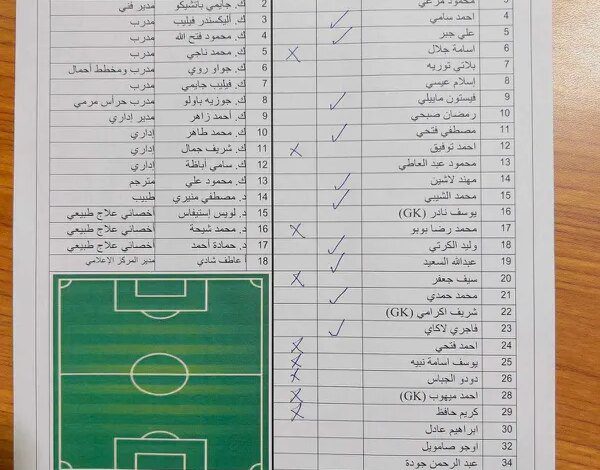 محمود مرعي
4 احمد سامي
5 علي جبر
6 اسامة جلال
7 بلاتي توريه
8 إسلام عيسي
9 فيستون ماييلي
10 رمضان صبحي
11 مصطفي فتحي
12 احمد توفيق
13 محمود عبد العاطي
14 مهند لاشين
15 محمد الشيبي
16 يوسف نادر (GK)
17 محمد رضا بوبو
18 وليد الكرتي
19 عبدالله السعيد
20 سيف جعفر
21 محمد حمدي
22 شريف اكرامي (GK)
23 فاجري لاكاي
24 احمد فتحي
25 يوسف اسامة نبيه
26 دودو الجباس
28 احمد ميهوب (GK)
29 كريم حافظ
30 ابراهيم عادل
32 اوجو صامويل
34 عبد الرحمن جودة
2 ك. جايمي بانشيكو مدير فني
3 ك. أليكسندر فيليب مدرب
4 ك. محمود فتح الله مدرب
5 ك. محمد ناجي مدرب
6 ك. جواو روي مدرب ومخطط أحمال
7 ك. فيليب جايمي مدرب
8 ك. جوزيه باولو مدرب حراس مرمي
9 ك. أحمد زاهر مدير إداري
10 ك. محمد طاهر إداري
11 ك. شريف جمال إداري
12 ك. سامي أباظة إداري
13 ك. محمود علي مترجم
14 د. مصطفي منيري طبيب
15 د. لويس إستيفاس أخصائي علاج طبيعي
16 د. محمد شيحة أخصائي علاج طبيعي
17 د. حمادة أحمد أخصائي علاج طبيعي
18 أ/عاطف شادي مدير المركز الإعلامي